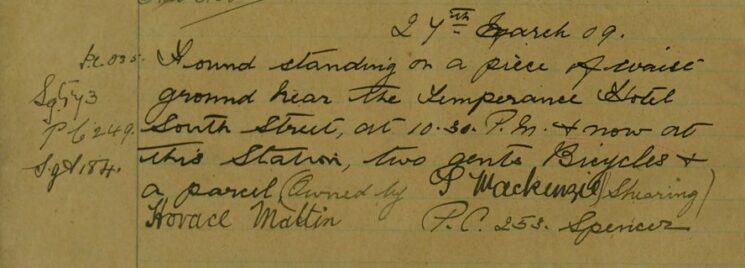 27th March 09.
Found standing on a piece of waist
ground near the Temperance Hotel
South Street, at 10.30. P.M. & now at
this Station, two gents Bicycles &
a parcel (Owned by Mackenzie) Shearing)
Horace Mattin P.C. 253. Spencer
P.C. 035.
Sgt 73
PC 249.
Sgt 184.